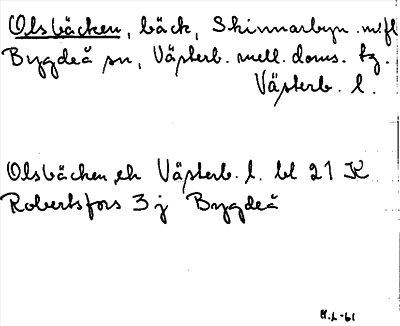 Olsbäcken, bäck, Skinnarbyn m fl
Bygdeå sn, Västerb. mell. doms. tg.
Västerb. l.
Olsbäcken, ek Västerb. l. bl 21 K
Robertsfors 3 j Bygdeå